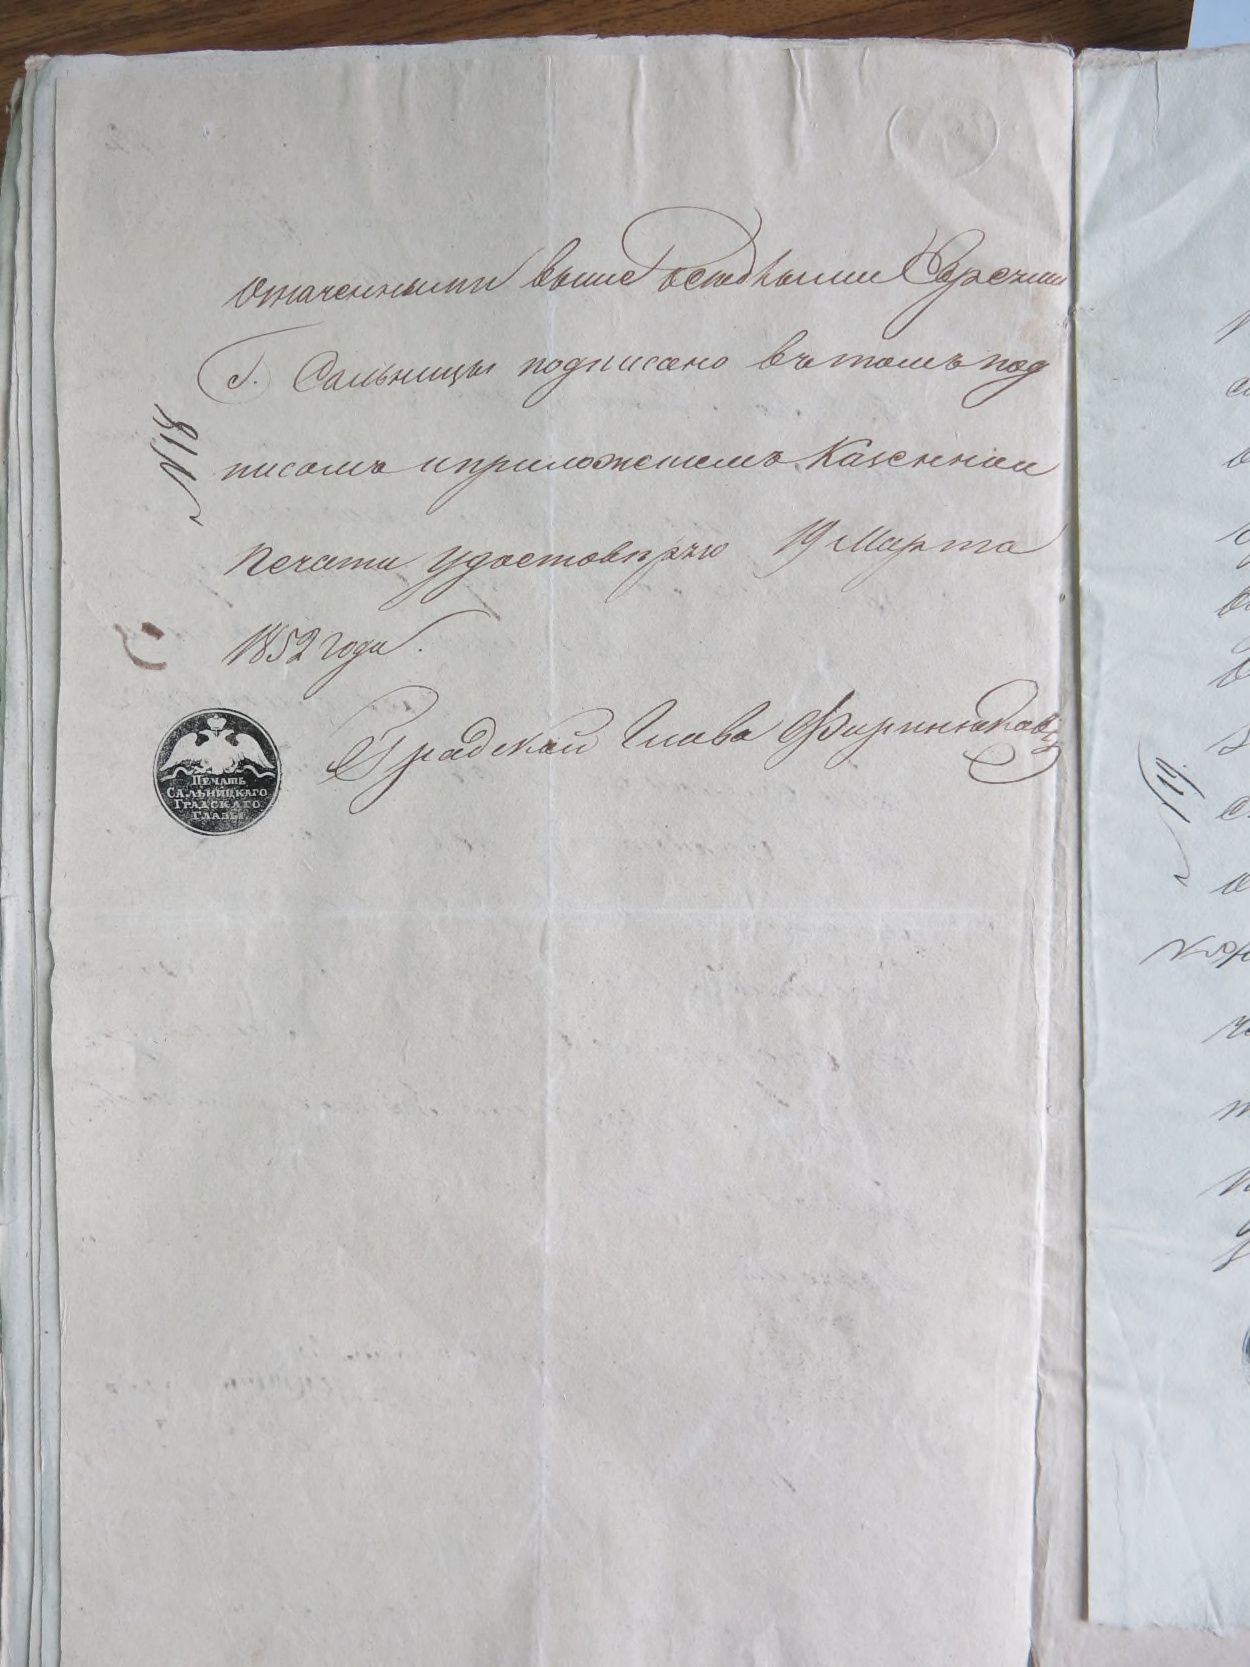 означенными выше Еврѣями
г. Сальницы подписано въ томъ под
писомъ и приложениемъ Казенной
Печати удостовѣряю 19 Марта
1852 года.
N 18
Градской Глава
ПЕЧАТЬ
САЛЬНИЦКАГО
ГРАДСКАГО
ГЛАВЫ
N 19